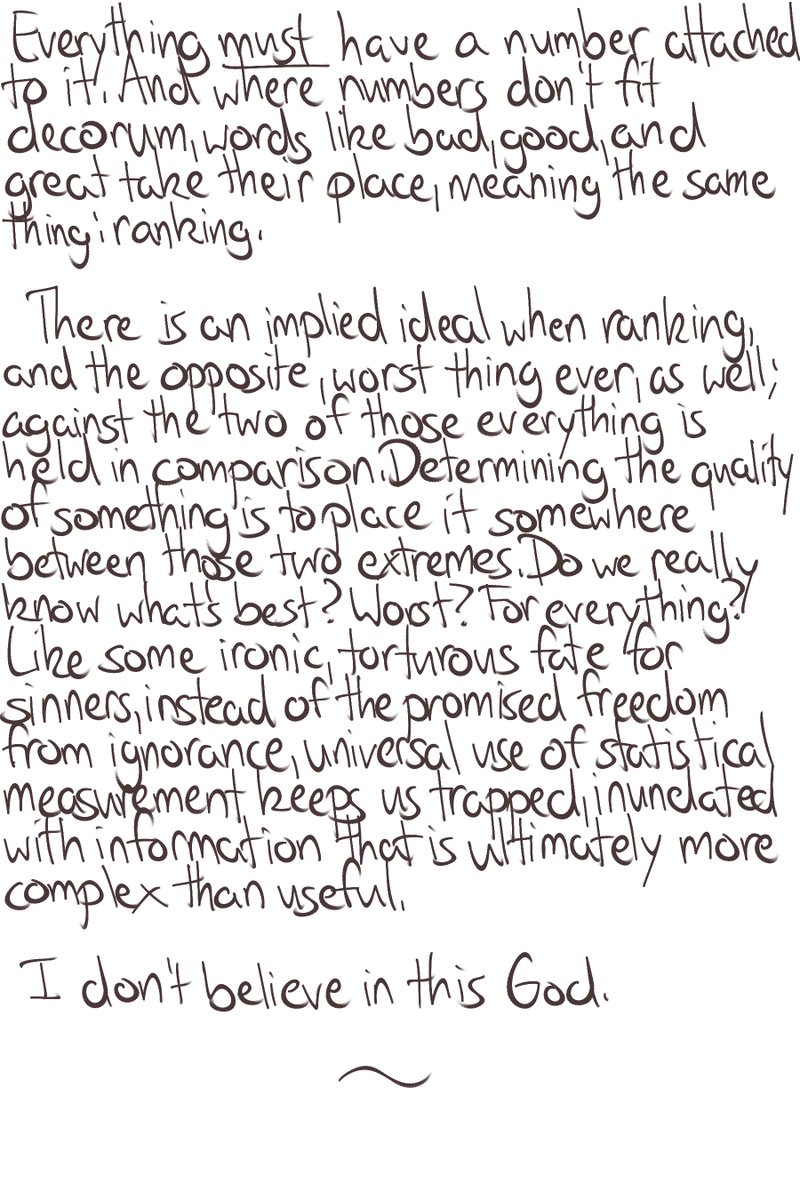 Everything must have a number attached
to it. And where numbers don't fit
decorum, words like bad, good, and
great take their place, meaning the same
thing: ranking.
There is an implied ideal when ranking,
and the opposite, worst thing ever, as well;
against the two of those everything is
held in comparison. Determining the quality
of something is to place it somewhere
between those two extremes. Do we really
know what's best? Worst? For everything?
Like some ironic, torturous fate for
sinners, instead of the promised freedom
from ignorance, universal use of statistical
measurement keeps us trapped, inundated
with information that is ultimately more
complex than useful.
I don't believe in this God.